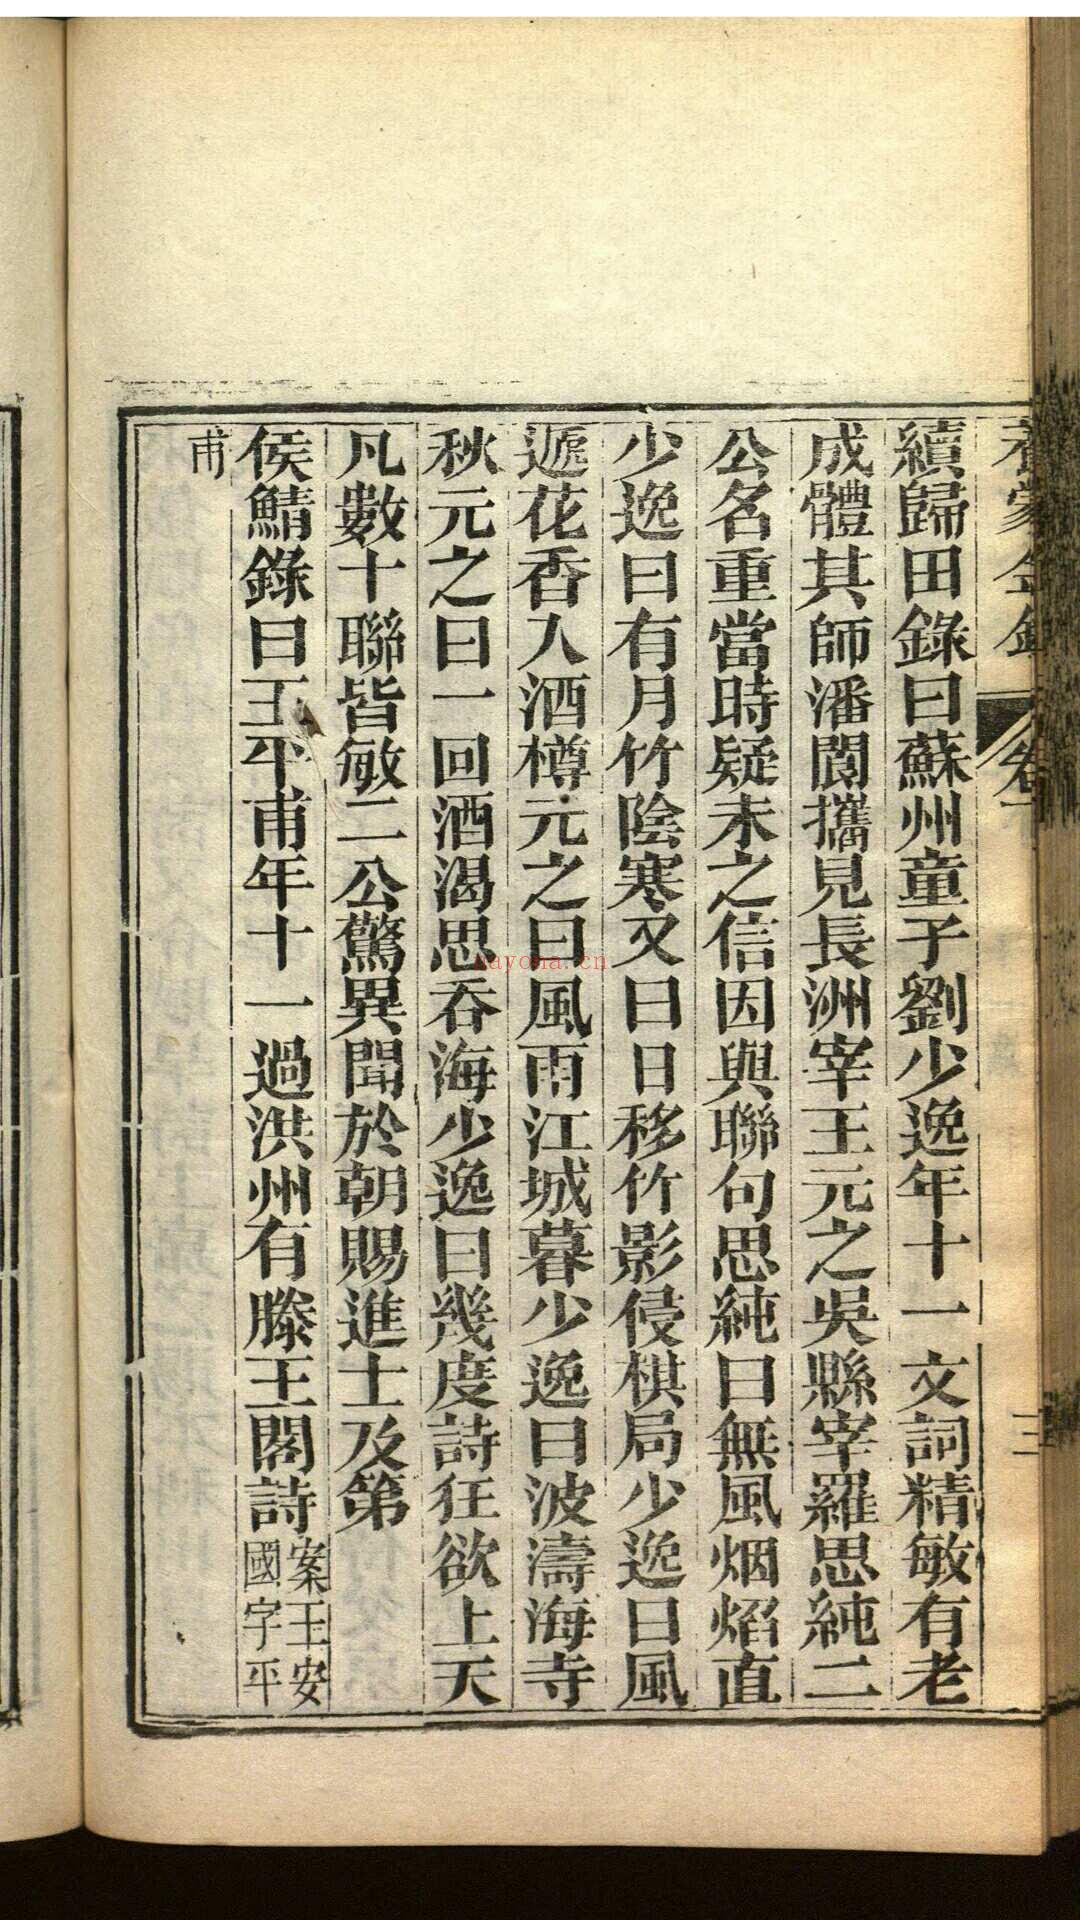 養蒙金鑑 卷下 三
續歸田錄曰蘇州童子劉少逸年十一文詞精敏有老
成體其師潘閬攜見長洲宰王元之吳縣宰羅思純二
公名重當時疑未之信因與聯句思純曰無風烟焰直
少逸曰有月竹陰寒又曰日移竹影侵棋局少逸曰風
遞花香入酒樽元之曰風雨江城暮少逸曰波濤海寺
秋元之曰一回酒渴思吞海少逸曰幾度詩狂欲上天
凡數十聯皆敏二公驚異聞於朝賜進士及第
侯鯖錄曰王平甫年十一過洪州有滕王閣詩案王安國字平
甫
nayona.cn